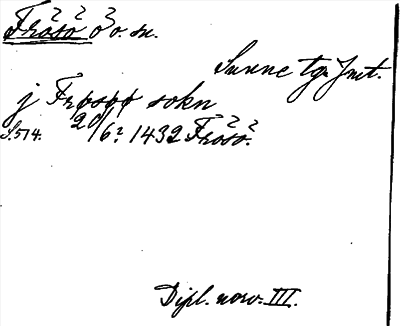 Frösö o. sn.
Sunne tg. Jmt.
j Frøsøø sokn
S. 514. 20/6? 1432 Frösö.
Dipl. norv. III.